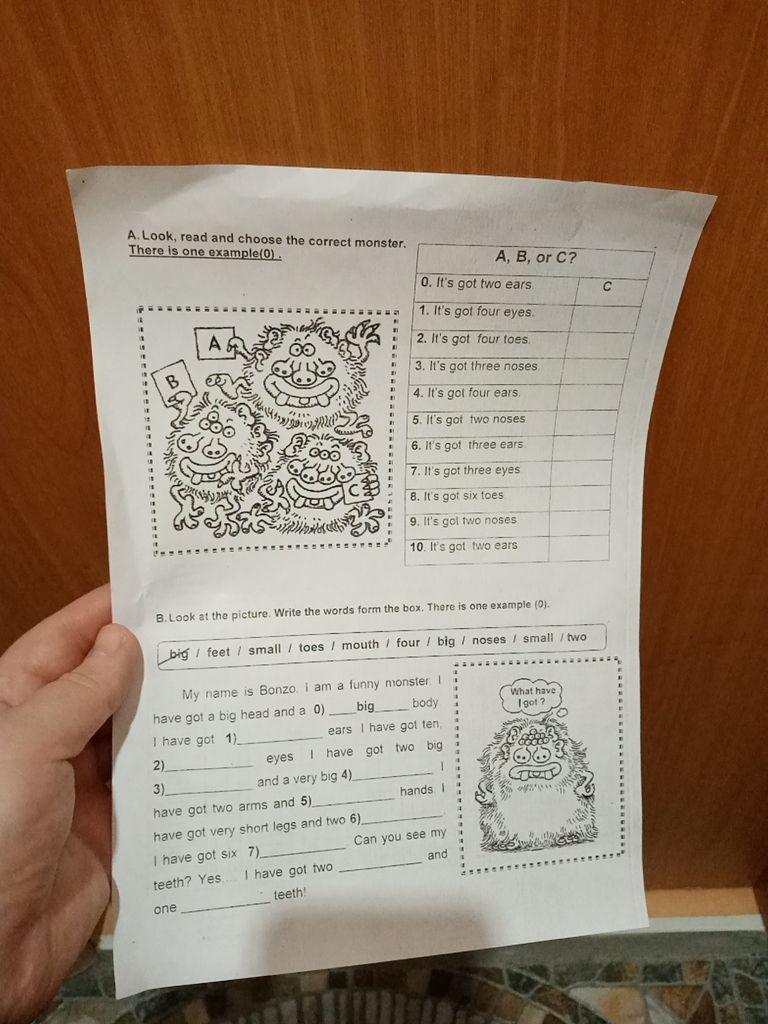 A. Look, read and choose the correct monster.
There is one example(0) .
A
B
C
A, B, or C?
0. It's got two ears. C
1. It's got four eyes.
2. It's got four toes.
3. It's got three noses.
4. It's got four ears.
5. It's got two noses
6. It's got three ears.
7. It's got three eyes
8. It's got six toes
9. It's got two noses
10. It's got two ears
B. Look at the picture. Write the words form the box. There is one example (0).
big / feet / small / toes / mouth / four / big / noses / small / two
My name is Bonzo. I am a funny monster. I
have got a big head and a 0) ____big_____ body
I have got 1)______________ ears I have got ten,
2)______________ eyes I have got two big
3)______________ and a very big 4)______________ I
have got two arms and 5)______________ hands. I
have got very short legs and two 6)______________.
I have got six 7)______________ Can you see my
teeth? Yes.... I have got two ______________ and
one ______________ teeth!
What have
I got ?